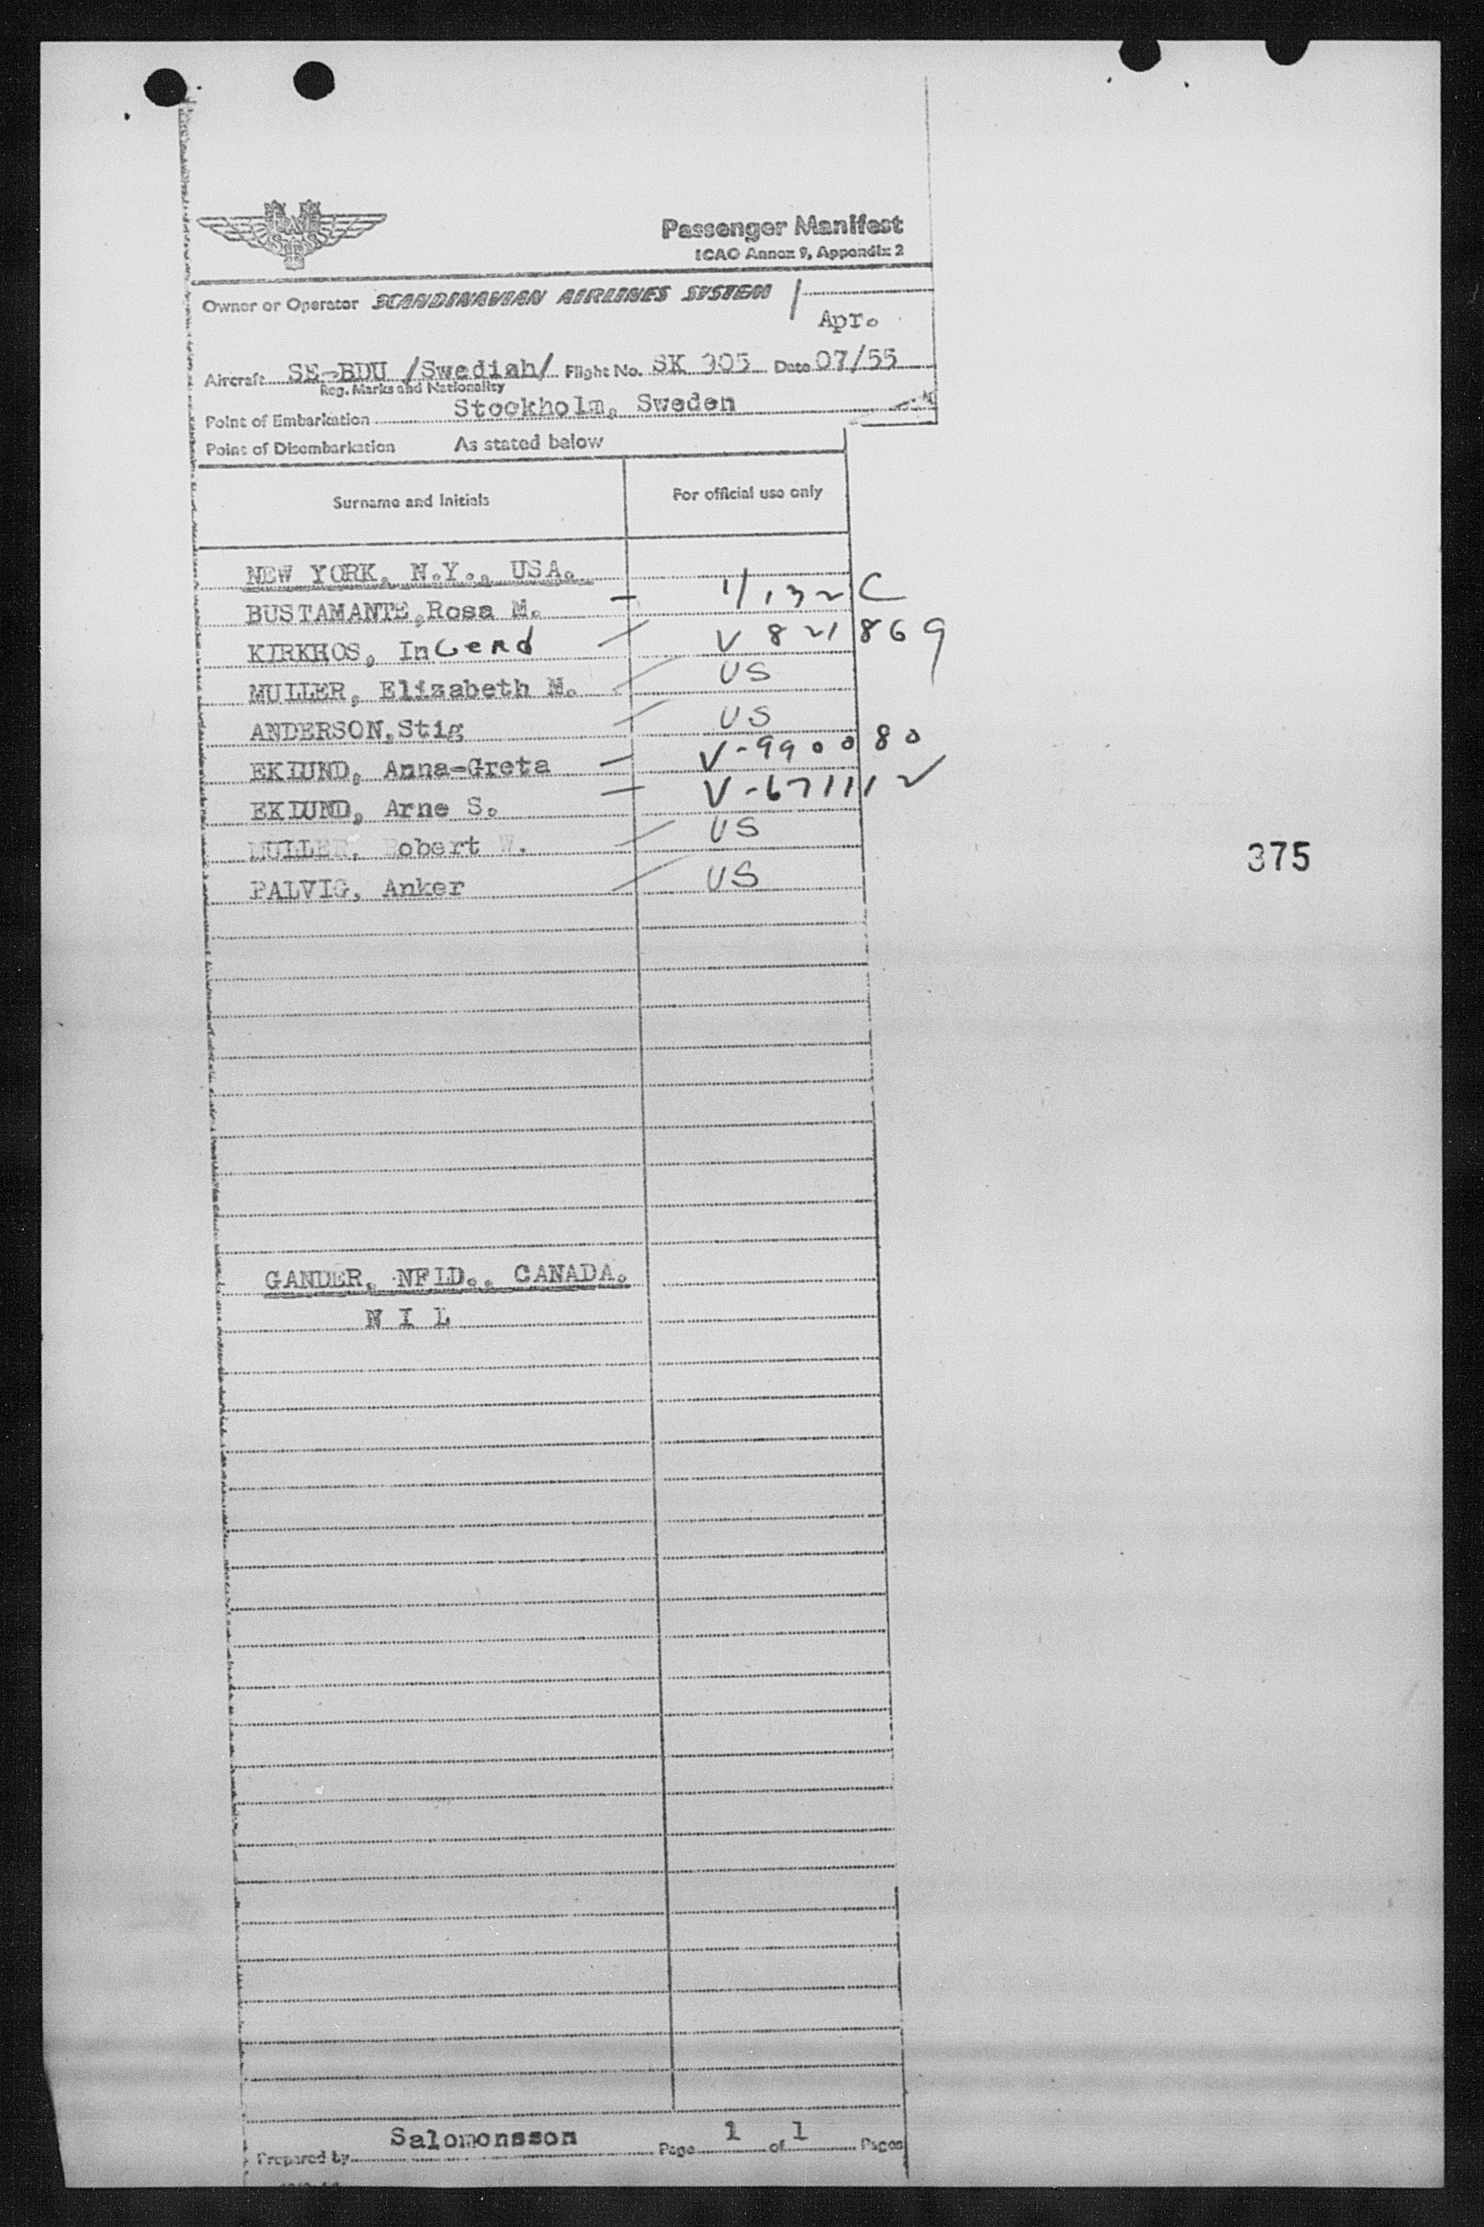 Passenger Manifest
ICAO Annex 9, Appendix 2
Owner or Operator SCANDINAVIAN AIRLINES SYSTEM
Apr.
Aircraft SE-BDU /Swedish/ Flight No. SK 905 Date 07/55
Reg. Marks and Nationality
Point of Embarkation Stockholm, Sweden
Point of Disembarkation As stated below
Surname and Initials For official use only
NEW YORK, N.Y., USA.
BUSTAMANTE, Rosa M. - 1/132 C
KIRKHOS, Ingerd / V 821869
MULLER, Elizabeth M. / US
ANDERSON, Stig / US
EKLUND, Anna-Greta - V-990080
EKLUND, Arne S. - V-671112
MULLER, Robert W. / US
PALVIG, Anker / US
375
GANDER, NFLD., CANADA.
N I L
Prepared by Salomonsson Page 1 of 1 Pages